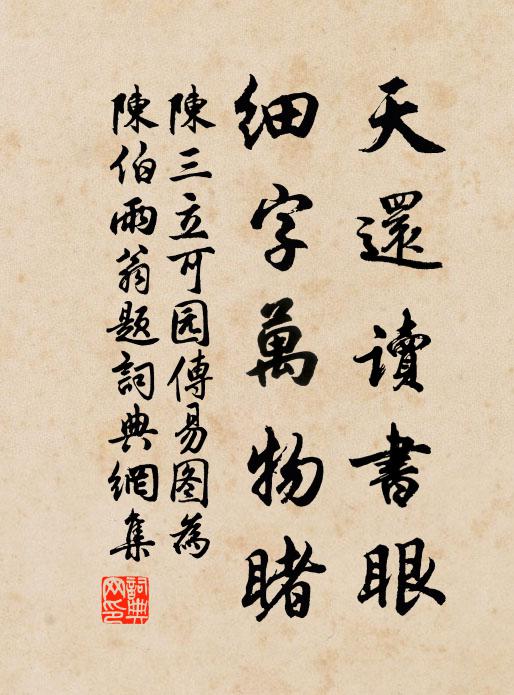 天還讀書眼
細字萬物睹
陳三立可园傳易图為
陳伯雨翁題詞典網集
詞典網印